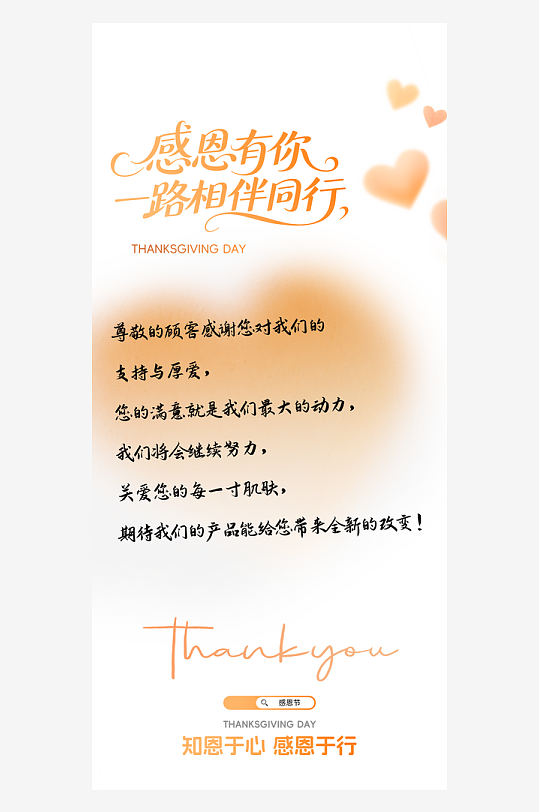 感恩有你
一路相伴同行,
THANKSGIVING DAY
尊敬的顾客感谢您对我们的
支持与厚爱，
您的满意就是我们最大的动力，
我们将会继续努力，
关爱您的每一寸肌肤，
期待我们的产品能给您带来全新的改变！
Thankyou
感恩节
THANKSGIVING DAY
知恩于心 感恩于行